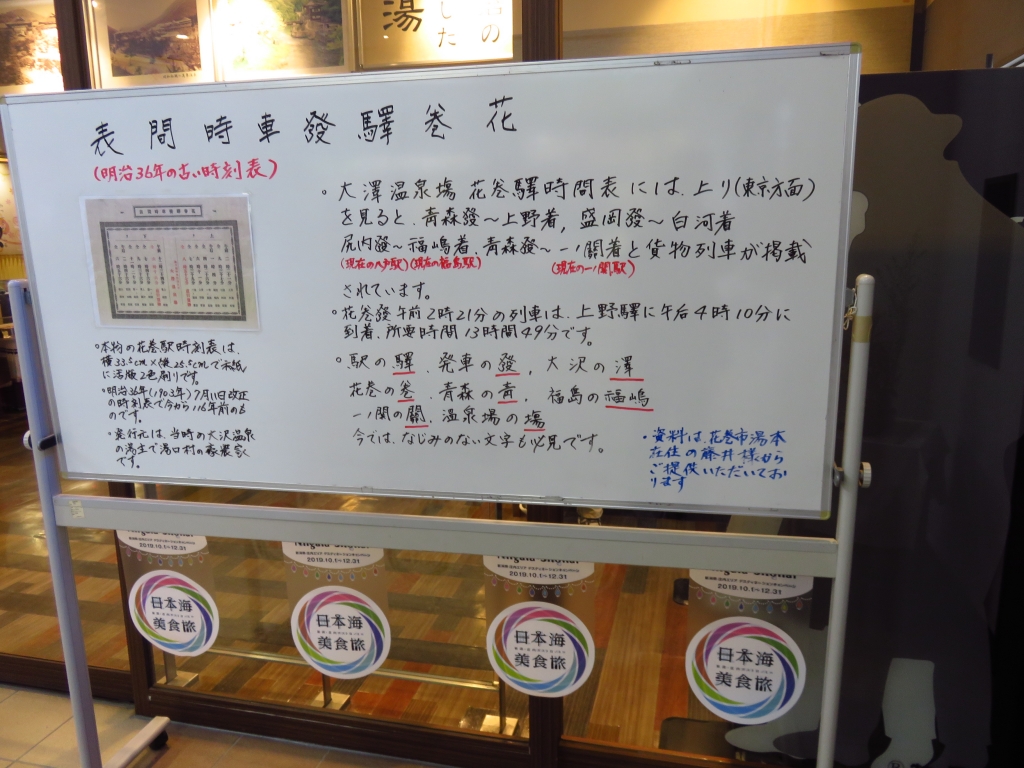 湯
した
の
表間時車發驛巻花
(明治36年の古い時刻表)
・大澤温泉場 花巻驛時間表 には、上り(東京方面)
を見ると、青森發〜上野着, 盛岡發〜白河着
尻内發〜福嶋着、青森發〜一ノ關着と貨物列車が掲載
(現在の八戸駅)(現在の福島駅) (現在の一ノ関駅)
されています。
・花巻發午前2時21分の列車は、上野驛に午后4時10分に
到着、所要時間13時間49分です。
・駅の驛、発車の發、大沢の澤
花巻の巻、青森の青、福島の福嶋
一ノ関の關、温泉場の塲
今では、なじみのない文字も必見です。
・本物の花巻駅時刻表は、
横33.5cm×縦25.5cmで和紙
に活版2色刷りです。
・明治36年(1903年)7月11日改正
の時刻表で今から116年前のも
のです。
・発行元は、当時の大沢温泉
の湯主で湯口村の
です。
・資料は、花巻市湯本
在住の藤井様から
ご提供いただいてお
ります
2019.10.1〜12.31
日本海
美食旅
2019.10.1〜12.31
日本海
美食旅
2019.10.1〜12.31
日本海
美食旅
2019.10.1〜12.31
日本海
美食旅